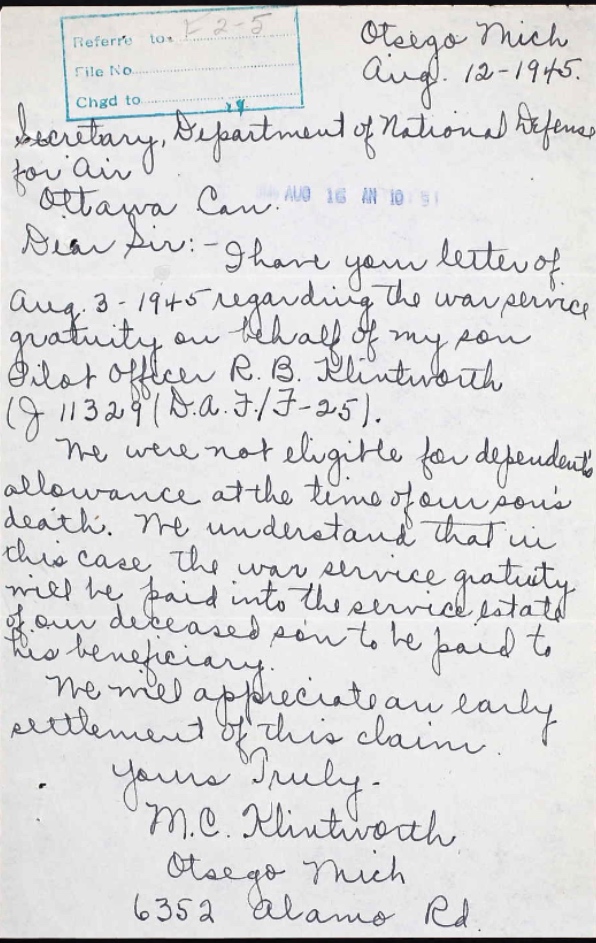 Referred to. F 2-5
File No.
Chgd to
Otsego Mich
Aug. 12-1945.
Secretary, Department of National Defense
for Air
Ottawa Can.
AUG 16 AM 10
Dear Sir:- I have your letter of
Aug. 3-1945 regarding the war service
gratuity on behalf of my son
Pilot Officer R. B. Klintworth
(J 11329 (D.A.F./F-25).
We were not eligible for dependent's
allowance at the time of our son's
death. We understand that in
this case the war service gratuity
will be paid into the service estate
of our deceased son to be paid to
his beneficiary.
We will appreciate an early
settlement of this claim.
Yours Truly-
M.C. Klintworth
Otsego Mich
6352 Alamo Rd.